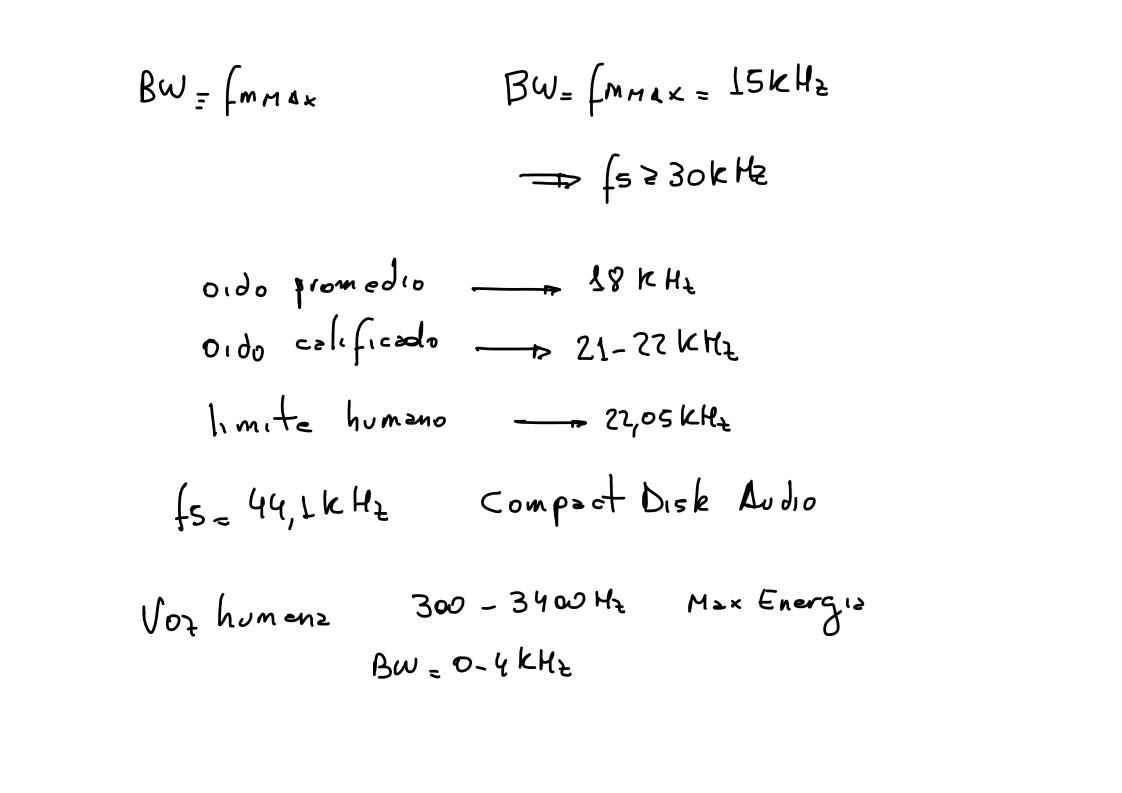 BW = fmMAX BW = fmMAX = 15kHz
⟹ fs ≥ 30kHz
oido promedio ⟶ 18 KHz
oido calificado ⟶ 21-22 KHz
limite humano ⟶ 22,05 KHz
fs = 44,1 KHz Compact Disk Audio
Voz humana 300 - 3400 Hz Max Energia
BW = 0-4 KHz